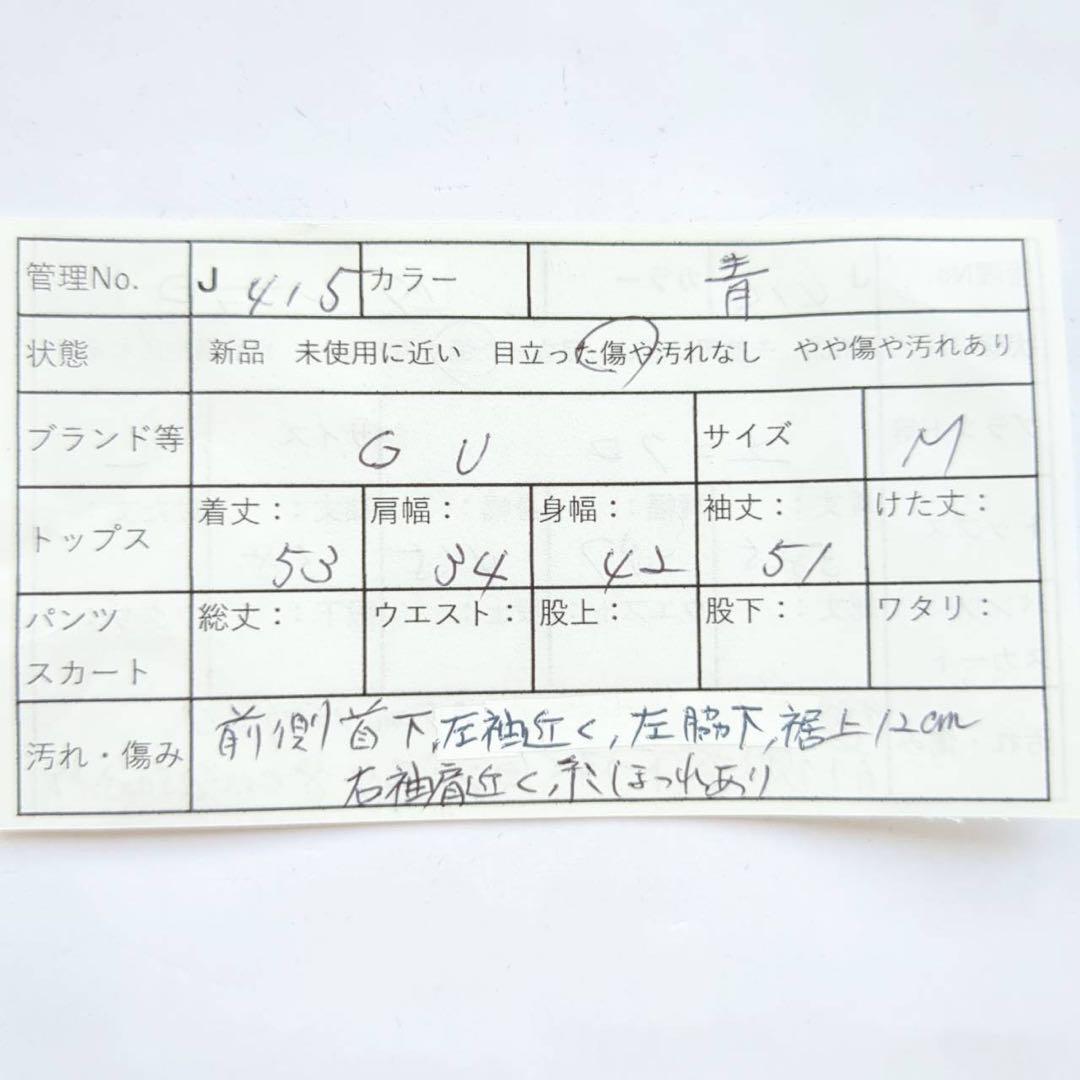 管理No. J 415 カラー 青
状態 新品 未使用に近い 目立った傷や汚れなし やや傷や汚れあり
ブランド等 GU サイズ M
トップス 着丈：53 肩幅：34 身幅：42 袖丈：51 けた丈：
パンツ 総丈： ウエスト： 股上： 股下： ワタリ：
スカート
汚れ・傷み 前側首下,左袖近く,左脇下,裾上12cm
右袖肩近く,糸ほつれあり